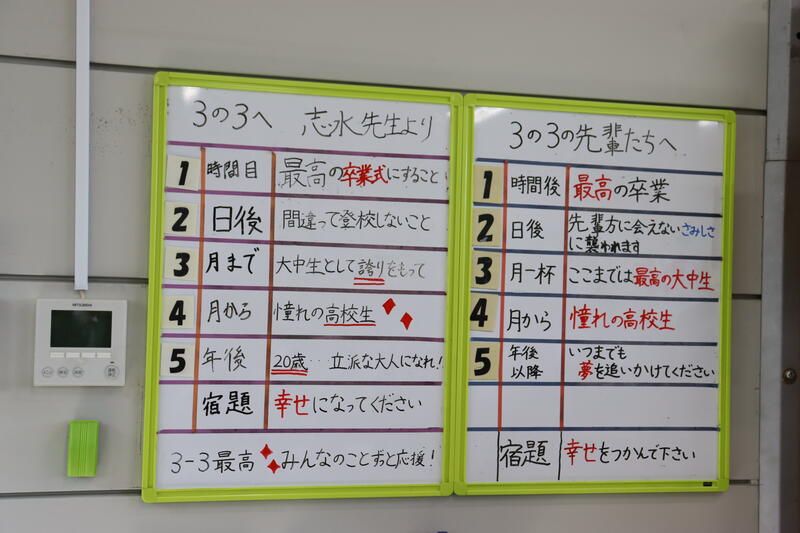 3の3へ 志水先生より
1 時間目 最高の卒業式にすること
2 日後 間違って登校しないこと
3 月まで 大中生として誇りをもって
4 月から 憧れの高校生
5 年後 20歳…立派な大人になれ!
宿題 幸せになってください
3-3最高 みんなのことずと応援!
3の3の先輩たちへ
1 時間後 最高の卒業
2 日後 先輩方に会えないさみしさ
に襲われます
3 月一杯 ここまでは最高の大中生
4 月から 憧れの高校生
5 年後 いつまでも
以降 夢を追いかけてください
宿題 幸せをつかんで下さい
MITSUBISHI